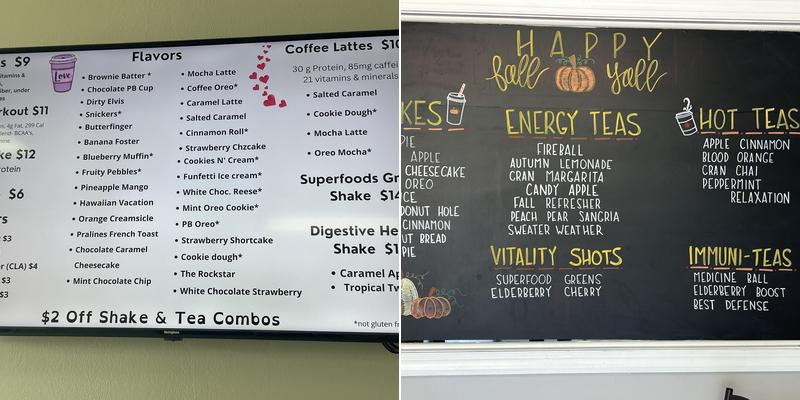 s $9
Love
Flavors
• Brownie Batter *
• Chocolate PB Cup
• Dirty Elvis
• Snickers*
• Butterfinger
• Banana Foster
• Blueberry Muffin*
• Fruity Pebbles*
• Pineapple Mango
• Hawaiian Vacation
• Orange Creamsicle
• Pralines French Toast
• Chocolate Caramel
Cheesecake
• Mint Chocolate Chip
• Mocha Latte
• Coffee Oreo*
• Caramel Latte
• Salted Caramel
• Cinnamon Roll*
• Strawberry Chzcake
• Cookies N' Cream*
• Funfetti Ice cream*
• White Choc. Reese*
• Mint Oreo Cookie*
• PB Oreo*
• Strawberry Shortcake
• Cookie dough*
• The Rockstar
• White Chocolate Strawberry
Coffee Lattes $10
30 g Protein, 85mg caffei
21 vitamins & minerals
• Salted Caramel
• Cookie Dough*
• Mocha Latte
• Oreo Mocha*
Superfoods Gr
Shake $14
Digestive He
Shake $1
• Caramel Ap
• Tropical Tw
orkout $11
ke $12
rotein
$6
rs
$3
r (CLA) $4
$3
$3
$2 Off Shake & Tea Combos
*not gluten fr
HAPPY
fall y'all
KES
PIE
APPLE
CHEESECAKE
OREO
CE
DONUT HOLE
CINNAMON
UT BREAD
PIE
ENERGY TEAS
FIREBALL
AUTUMN LEMONADE
CRAN MARGARITA
CANDY APPLE
FALL REFRESHER
PEACH PEAR SANGRIA
SWEATER WEATHER
VITALITY SHOTS
SUPERFOOD GREENS
ELDERBERRY CHERRY
HOT TEAS
APPLE CINNAMON
BLOOD ORANGE
CRAN CHAI
PEPPERMINT
RELAXATION
IMMUNI-TEAS
MEDICINE BALL
ELDERBERRY BOOST
BEST DEFENSE